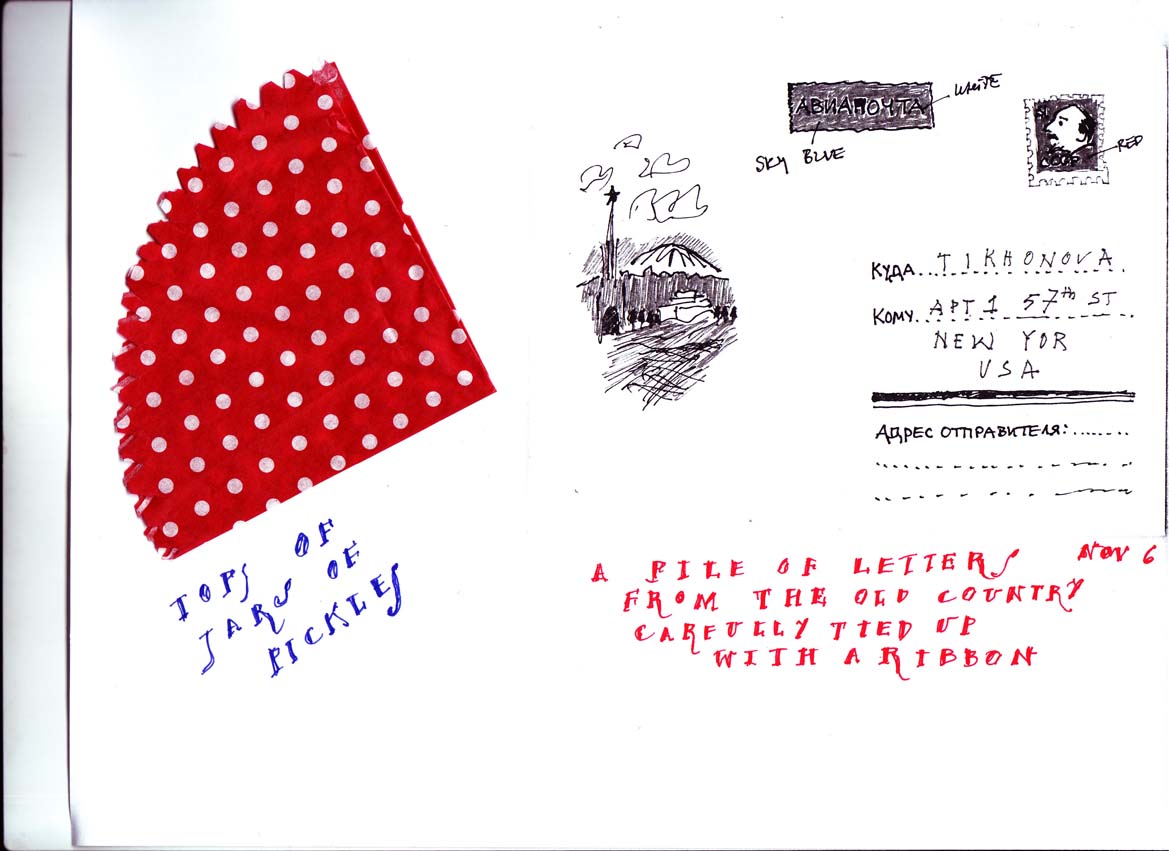 TOPS OF
JARS OF
PICKLES
АВИАПОЧТА
WHITE
SKY BLUE
RED
СССР
КУДА... TIKHONOVA
КОМУ... APT 1 57th ST
NEW YOR
USA
АДРЕС ОТПРАВИТЕЛЯ:.......
NOV 6
A PILE OF LETTERS
FROM THE OLD COUNTRY
CAREFULLY TIED UP
WITH A RIBBON